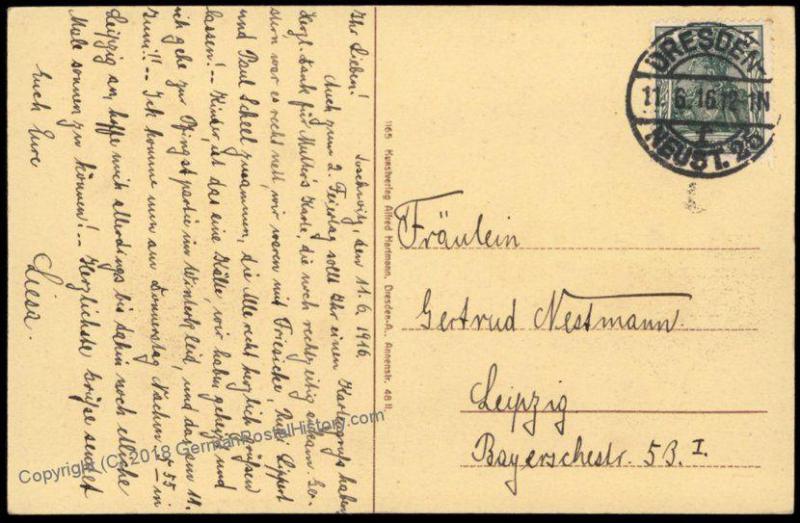 Loschwitz, den 11.6.1916.
Ihr Lieben!
Auch zum 2. Feiertag sollt Ihr einen Kartengruß haben.
Herzl. Dank für Mutter's Karte, die noch rechtzeitig ankam. Ge-
stern war es recht nett, wir waren mit Friesicke, Rudi Lippert
und Paul Scheel zusammen, die Alle recht herzlich grüßen
lassen! -- Kinder, ist das eine Kälte, wir haben geheizt und
ich gehe zur Pfingstpartie im Winterkleid, und das am 11.
Juni!! -- Ich komme nun am Donnerstag Nachm. 55 in
Leipzig an, hoffe mich allerdings bis dahin noch etliche
Male sonnen zu können! -- Herzlichste Grüße sendet
Euch Eure
Liesa.
1165 Kunstverlag Alfred Hartmann, Dresden-A., Annenstr. 48 II.
DRESDEN-
11.6.16.12-1N
NEUST. 25
Fräulein
Gertrud Nestmann.
Leipzig.
Bayerschestr. 53. I.
Copyright (C) 2018 GermanPostalHistory.com